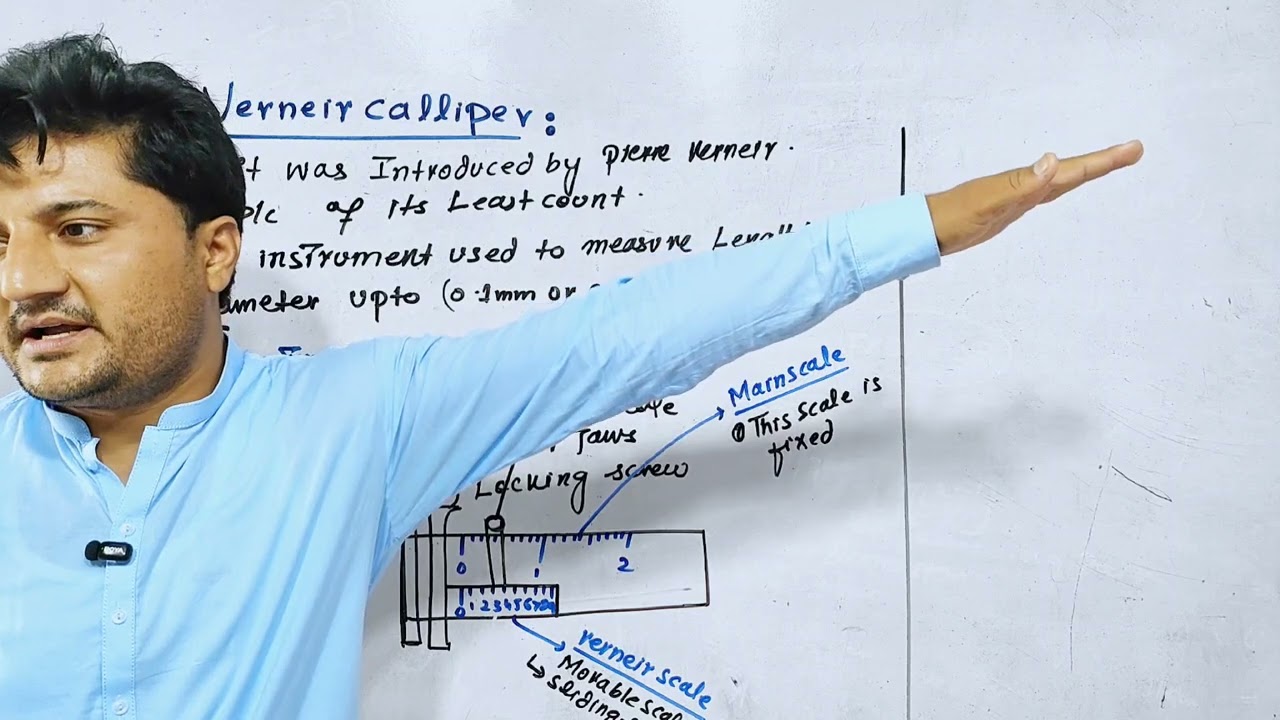 Verneir calliper:
It was Introduced by pierre Verneir.
of its Least count.
instrument used to measure
upto (0.1mm or
Jaws
Locking screw
Mainscale
This scale is
fixed
0 1 2
0 1 2 3 4 5 6 7 8 9
verneir scale
Movable scale
sliding